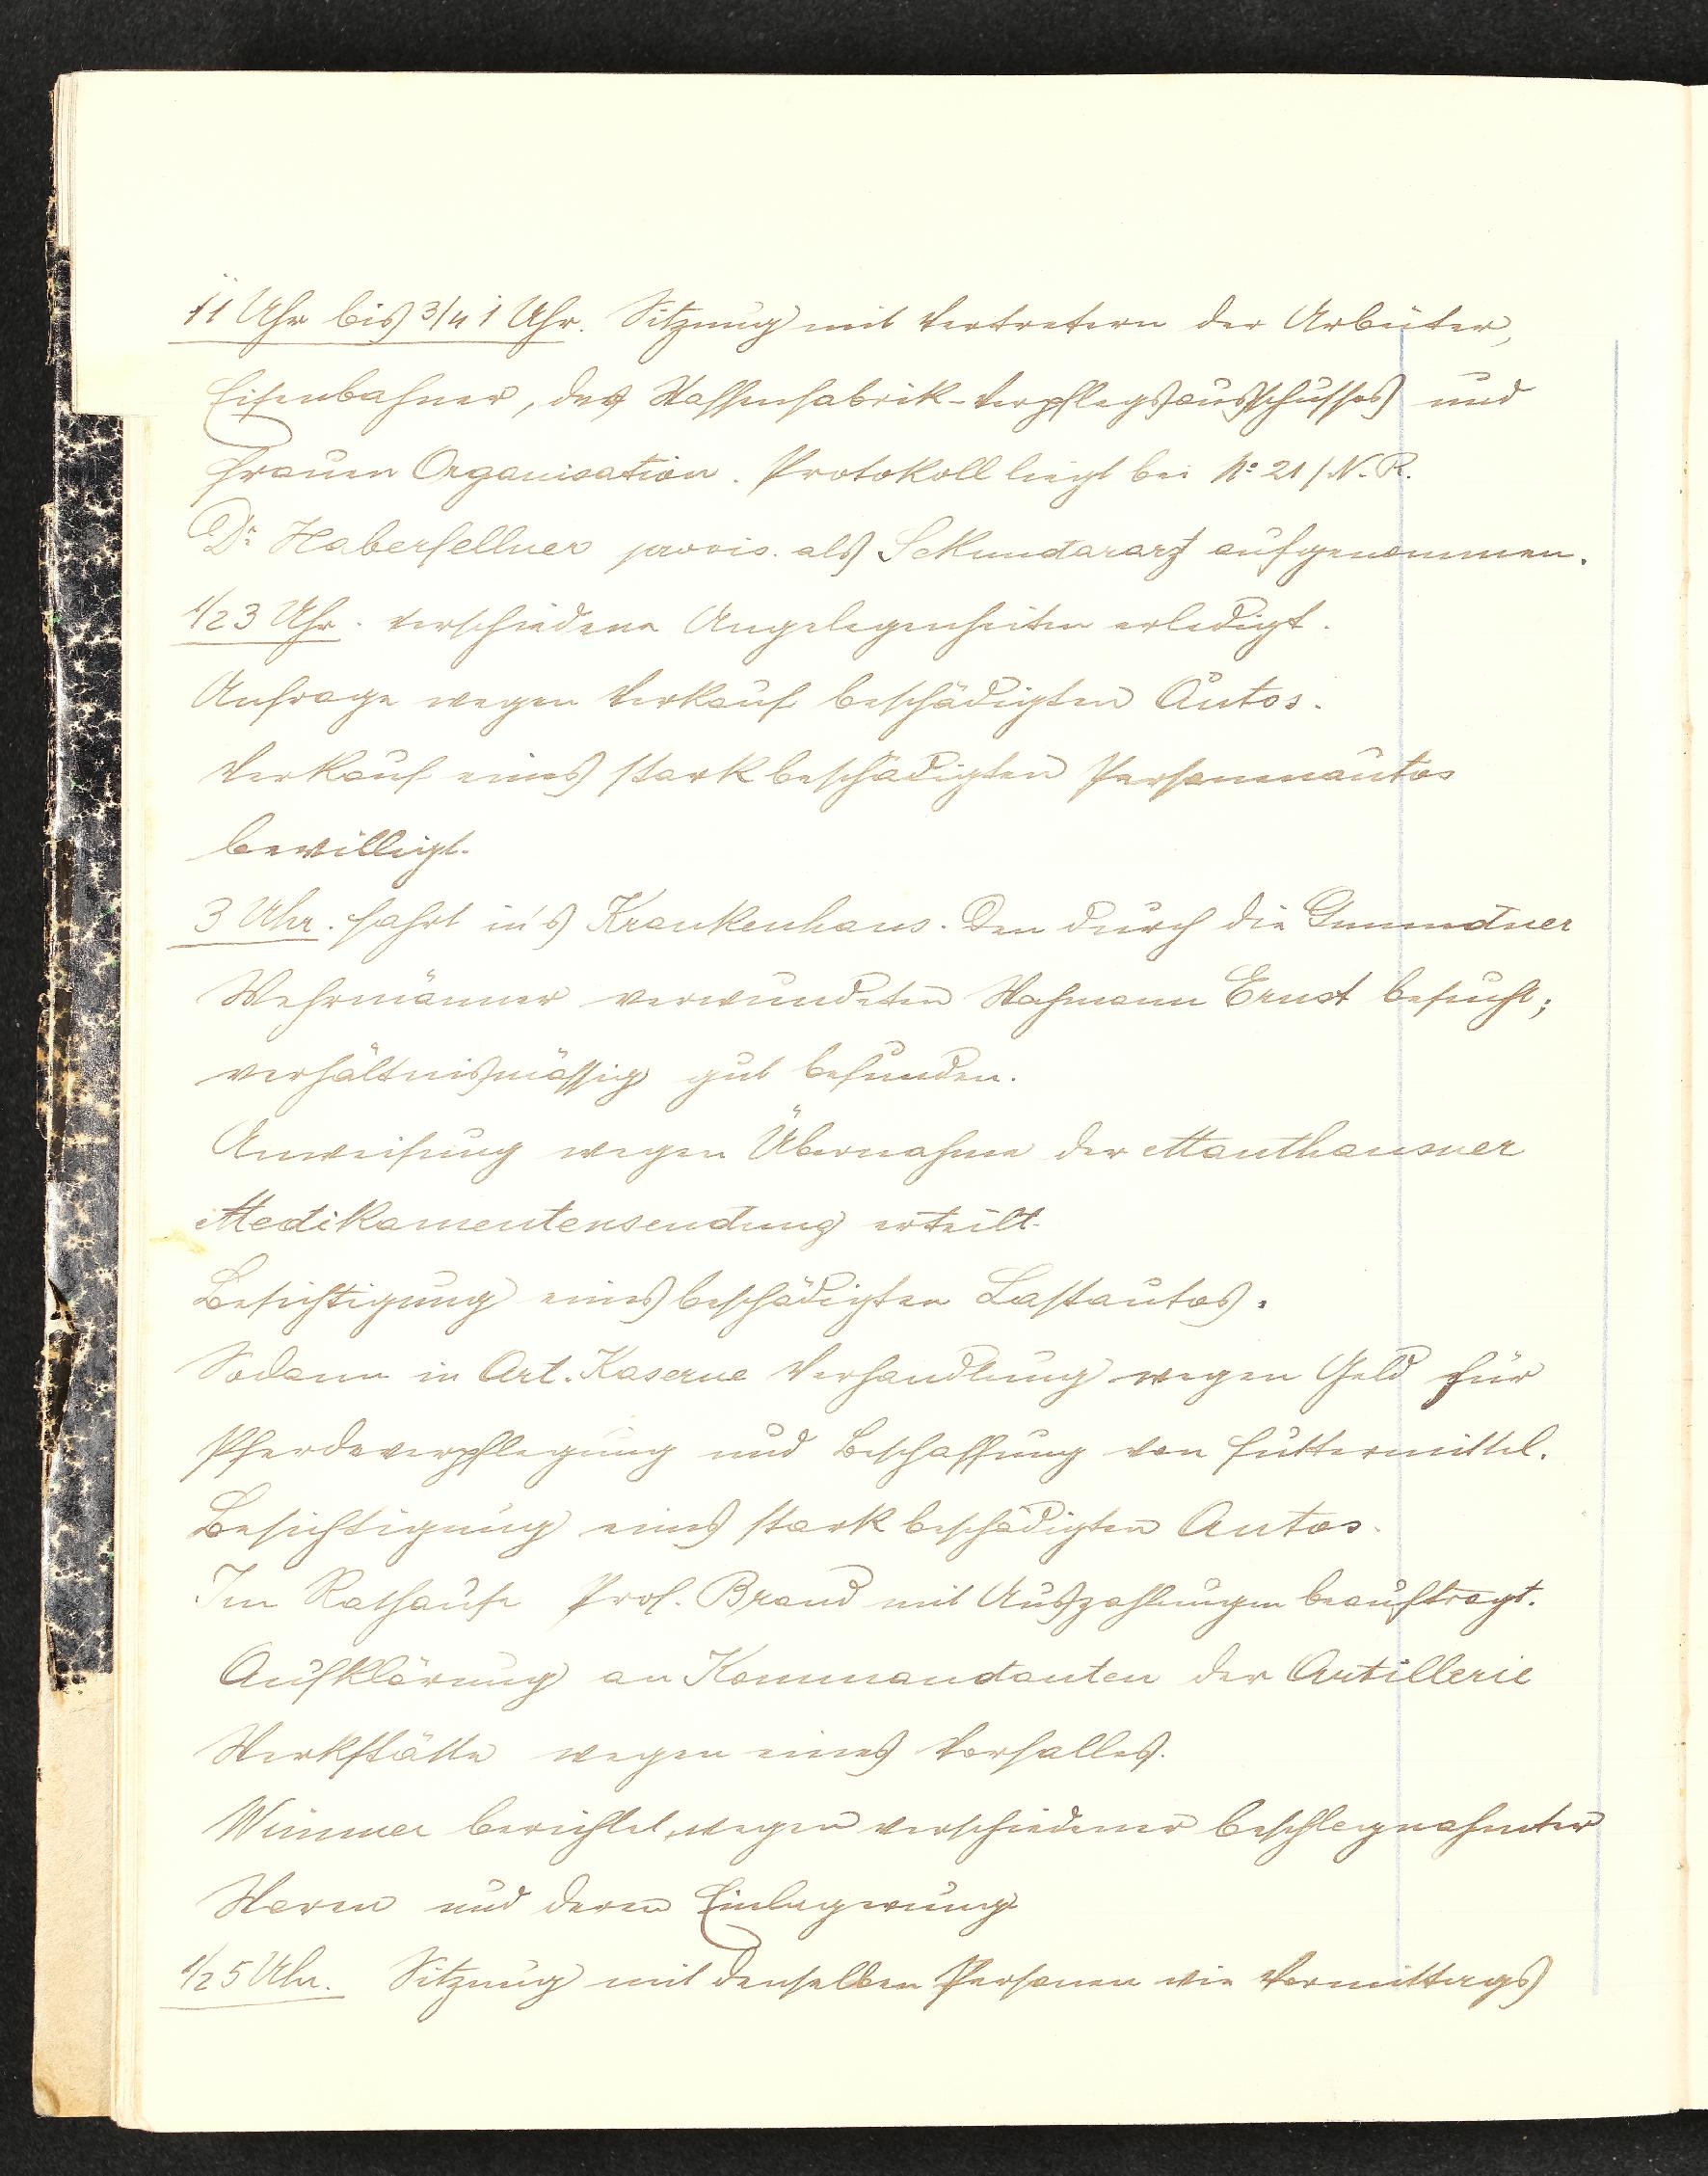 11 Uhr bis 3/4 1 Uhr. Sitzung mit Vertretern der Arbeiter,
Eisenbahner, des Waffenfabrik-Verpflegsausschusses und
Frauen Organisation. Protokoll liegt bei No 21/N.R.
Dr. Haberfellner provis. als Sekundararzt aufgenommen.
1/2 3 Uhr. Verschiedene Angelegenheiten erledigt.
Anfrage wegen Verkauf beschädigten Autos.
Verkauf eines stark beschädigten Personenautos
bewilligt.
3 Uhr. Fahrt in's Krankenhaus. Den durch die Gmundner
Wehrmänner verwundeten Wachmann Ernst besucht;
verhältnismässig gut befunden.
Anweisung wegen Übernahme der Mauthausner
Medikamentensendung erteilt.
Besichtigung eines beschädigten Lastautos.
Sodann in Art. Kaserne Verhandlung wegen Geld für
Pferdeverpflegung und Beschaffung von Futtermittel.
Besichtigung eines stark beschädigten Autos.
Im Rathause Prof. Brand mit Auszahlungen beauftragt.
Aufklärung an Kommandanten der Artillerie
Werkstätte wegen eines Vorfalles.
Wimmer berichtet wegen verschiedener beschlagnahmter
Waren und deren Einlagerung
1/2 5 Uhr. Sitzung mit denselben Personen wie Vormittags